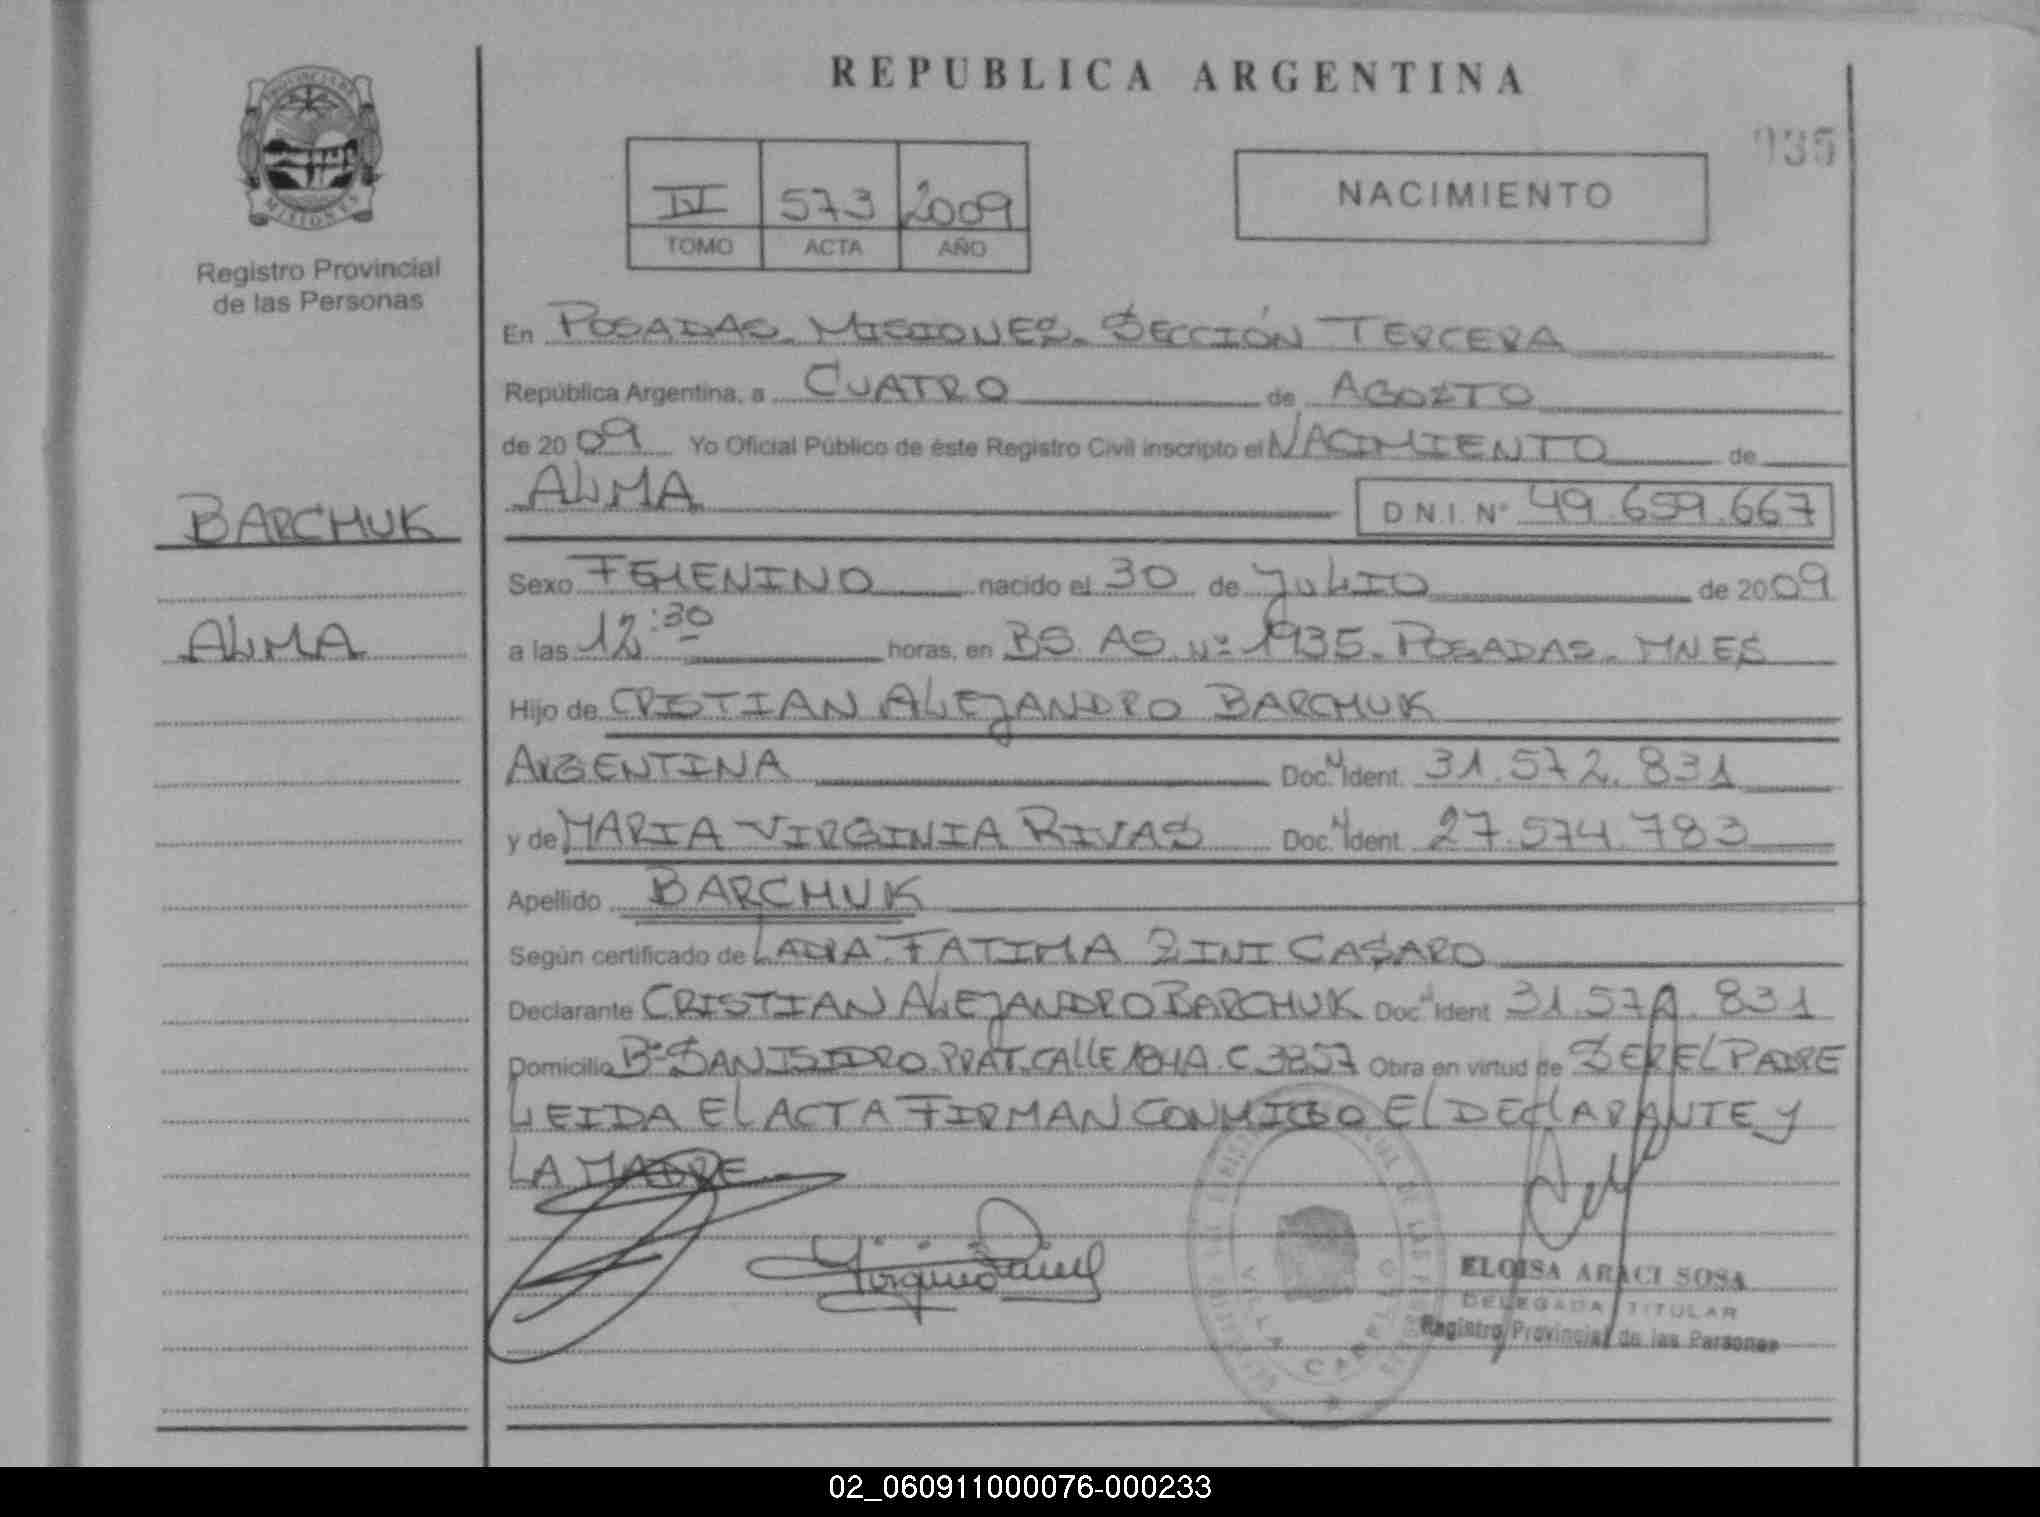 REPUBLICA ARGENTINA
PROVINCIA DE
MISIONES
Registro Provincial
de las Personas
IV 573 2009
TOMO ACTA AÑO
NACIMIENTO
935
BARCHUK
ALMA
En POSADAS. MISIONES. SECCIÓN TERCERA
República Argentina, a CUATRO de AGOSTO
de 2009 Yo Oficial Público de éste Registro Civil inscripto el NACIMIENTO de
ALMA D.N.I. Nº 49.659.667
Sexo FEMENINO nacido el 30 de JULIO de 2009
a las 12:30 horas, en BS. AS. Nº 1935. POSADAS. MNES
Hijo de CRISTIAN ALEJANDRO BARCHUK
ARGENTINA Doc. N Ident. 31.572.831
y de MARIA VIRGINIA RIVAS Doc. N Ident. 27.574.783
Apellido BARCHUK
Según certificado de FATIMA ZINI CASARO
Declarante CRISTIAN ALEJANDRO BARCHUK Doc. N Ident 31.572.831
Domicilio Bº SAN ISIDRO. PRAT. CALLE 184A. C. 3857 Obra en virtud de SER EL PADRE
LEIDA EL ACTA FIRMAN CONMIGO EL DECLARANTE Y
LA MADRE
ELOISA ARACI SOSA
DELEGADA TITULAR
Registro Provincial de las Personas
02_060911000076-000233